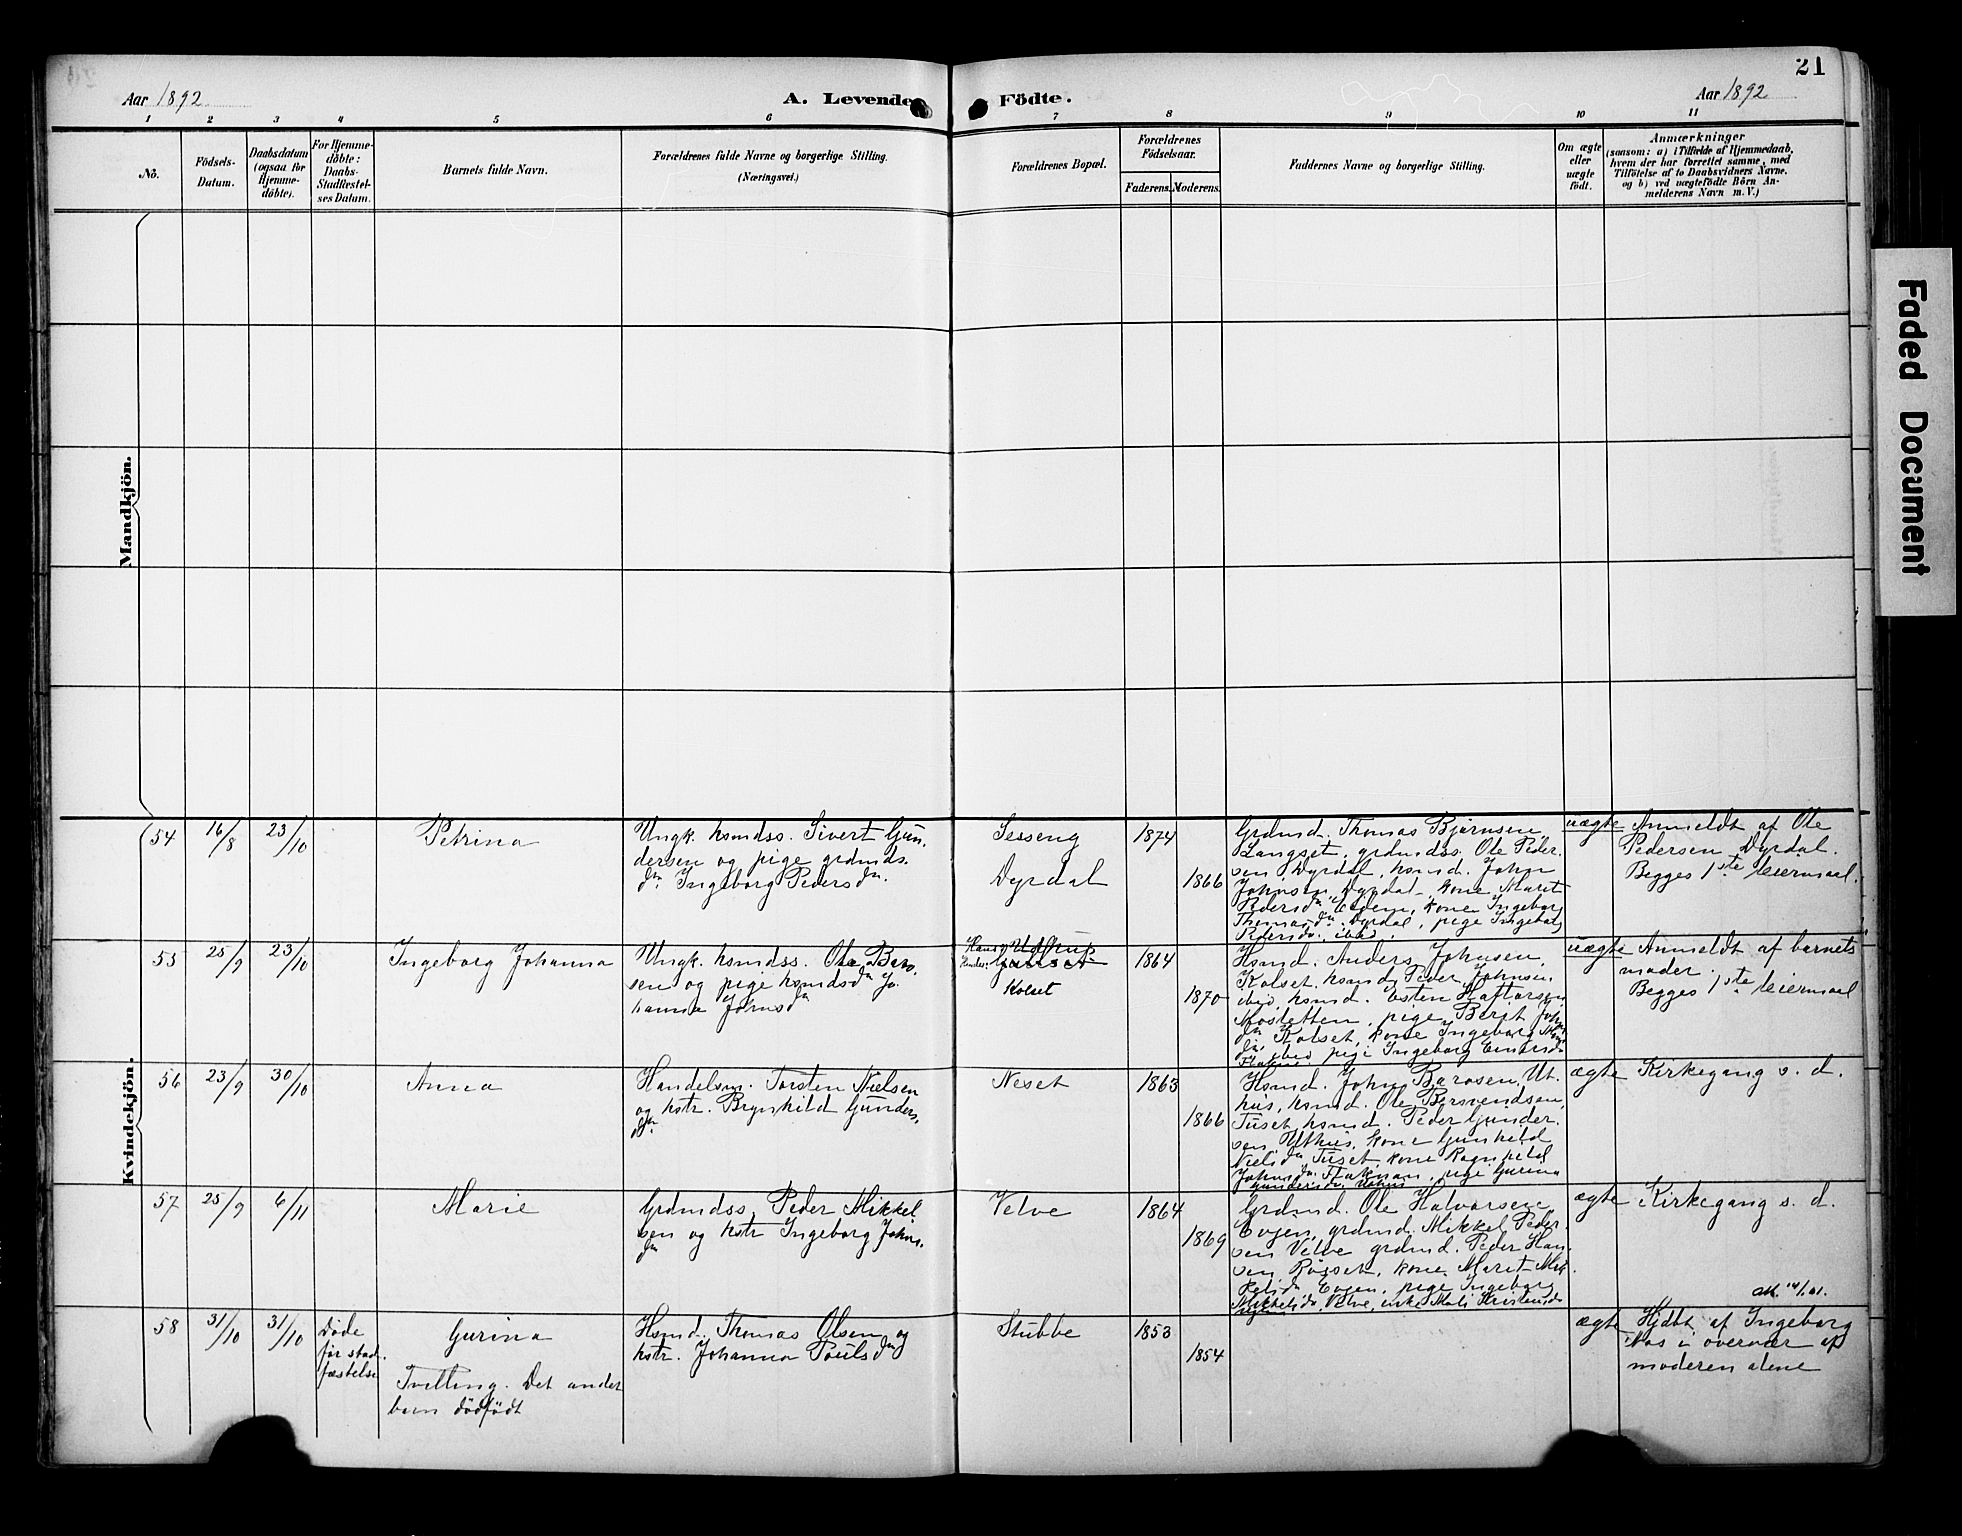 21
Aar 1892
A. Levende Födte.
Aar 1892
1 2 3 4 5 6 7 8 9 10 11
No.
Födsels-
Datum.
Daabsdatum
(ogsaa for
Hjemme-
döbte).
For Hjemme-
döbte:
Daabs-
Stadfestel-
ses Datum.
Barnets fulde Navn.
Forældrenes fulde Navne og borgerlige Stilling.
(Næringsvei.)
Forældrenes Bopæl.
Forældrenes
Födselsaar.
Faderens. Moderens.
Faddernes Navne og borgerlige Stilling.
Om ægte
eller
uægte
födt.
Anmærkninger
(saasom: a) i Tilfælde af Hjemmedaab,
hvem der har forrettet samme, med
Tilföielse af to Daabsvidners Navne,
og b) ved uægtefödte Börn An-
melderens Navn m. V.)
Mandkjön.
Kvindekjön.
54
16/8
23/10
Petrina
Ungk. hsmdss. Sivert Gun-
dersen og pige grdmds.
dtr. Ingeborg Pedersdtr.
Sesseng
Dyrdal
1874
1866
Grdmd. Thomas Björnsen
Langset, grdmdss. Ole Peder-
sen Dyrdal, hsmd. John
Johnsen Dyrdal, kone Marit
Pedersdtr. Eidem, kone Ingeborg
Thomasdtr. Dyrdal, pige Ingeborg
Pedersdtr. ibid.
uægte
Anmeldt af Ole
Pedersen Dyrdal.
Begges 1ste leiermaal.
55
25/9
23/10
Ingeborg Johanna
Ungk. hsmdss. Ole
sen og pige hsmdsdtr Jo-
hanna Johnsdtr
Kolset
1864
1870
Hsmd. Anders Johnsen,
Kolset, hsmd. Peder Johnsen
ibid, hsmd. Esten Haftorsen
Mosletten, pige Berit Johns
dtr Kolset, kone Ingeborg
dtr. ibid, pige Ingeborg
uægte
Anmeldt af barnets
moder.
Begges 1ste leiermaal
56
23/9
30/10
Anna
Handelsm. Torsten Nielsen
og kstr. Brynhild Gunders.
dtr.
Neset
1863
1866
Hsmd. John Barosen, Ut-
hus, hsmd. Ole Bersvendsen,
Tuset, hsmd. Peder Gunder-
sen Uthus, kone Gunhild
Nielsdtr Tuset, kone Ragnhild
Johnsdtr. , pige Gurina
Gundersdtr. Uthus
ægte
Kirkegang s. d.
57
25/9
6/11
Marie
Grdmdss. Peder Mikkel
sen og kstr Ingeborg Johns.
dtr
Velve
1864
1869
Grdmd. Ole Halvorsen,
Evjen, grdmd. Mikkel Peder-
sen Velve grdmd. Peder Han-
sen Rösset, kone Marit Mik
kelsdtr Evjen, pige Ingeborg
Mikkelsdtr. Velve, enke Mali Kristensdtr
ægte
Kirkegang s. d.
58
31/10
31/10
Döde
før stad-
fæstelse
Gurina
Tvilling. Det andet
barn dödfödt
Hsmd. Thomas Olsen og
kstr. Johanna Poulsdtr
Stubbe
1853
1854
ægte
Hjdbt af Ingeborg
Aas i overvær af
moderen alene
Faded Document